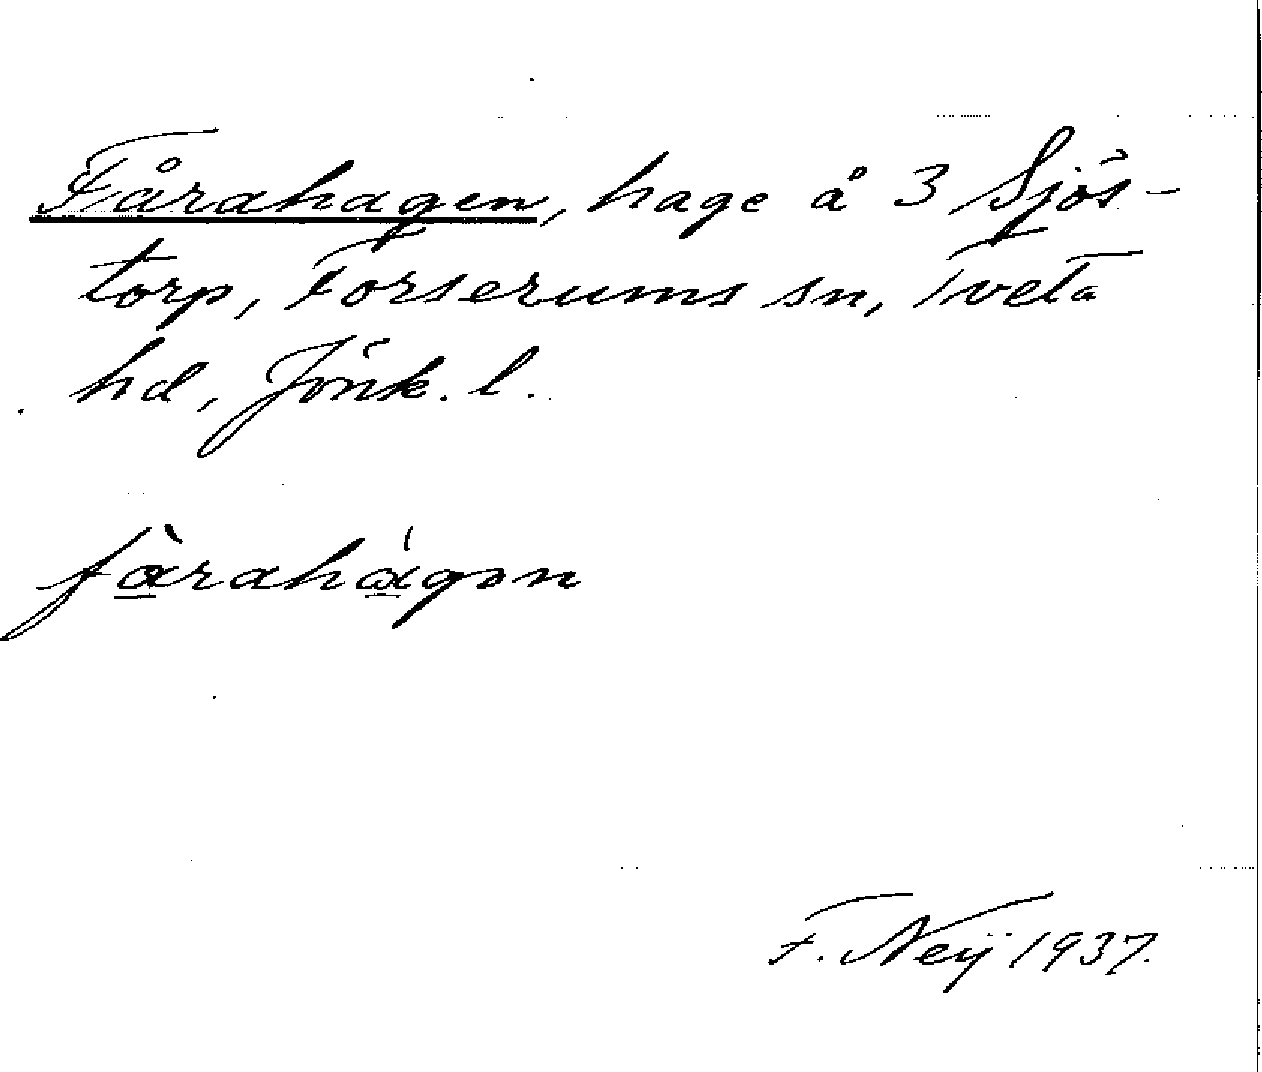 Fårahagen, hage å 3 Sjös-
torp, Forserums sn, Tveta
hd, Jönk. l.
fàrahágən
F. Neij 1937.